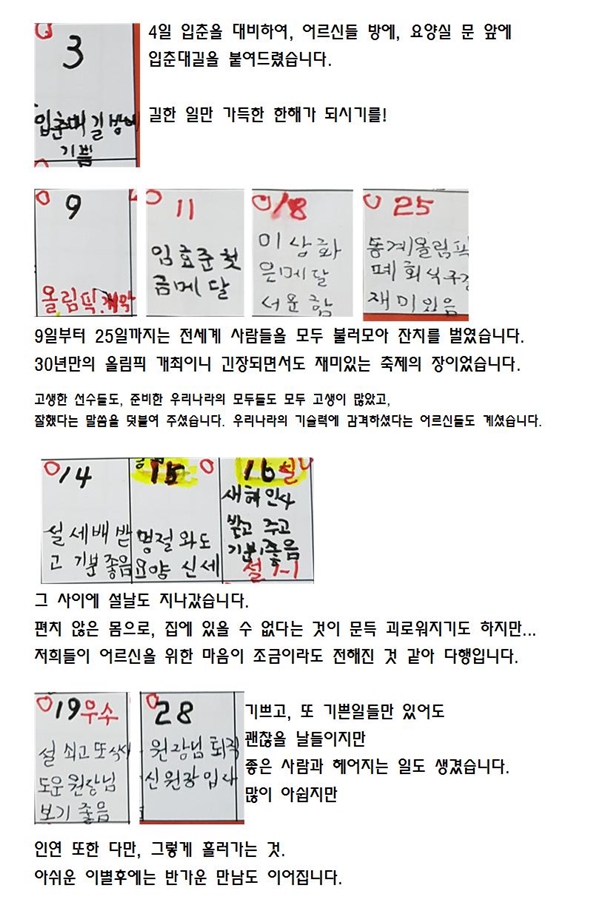 3
입춘대길 방에
기쁨
4일 입춘을 대비하여, 어르신들 방에, 요양실 문 앞에
입춘대길을 붙여드렸습니다.
길한 일만 가득한 한해가 되시기를!
9
올림픽.개막
11
임효준 첫
금메달
18
이상화
은메달
서운함
25
동계올림픽
폐회식구경
재미있음
9일부터 25일까지는 전세계 사람들을 모두 불러모아 잔치를 벌였습니다.
30년만의 올림픽 개최이니 긴장되면서도 재미있는 축제의 장이었습니다.
고생한 선수들도, 준비한 우리나라의 모두들도 모두 고생이 많았고,
잘했다는 말씀을 덧붙여 주셨습니다. 우리나라의 기술력에 감격하셨다는 어르신들도 계셨습니다.
14
설 세배 받
고 기분 좋음
15
명절 와도
요양 신세
16 설날
새해 인사
받고 주고
기분 좋음
설 1-1
그 사이에 설날도 지나갔습니다.
편치 않은 몸으로, 집에 있을 수 없다는 것이 문득 괴로워지기도 하지만...
저희들이 어르신을 위한 마음이 조금이라도 전해진 것 같아 다행입니다.
19 우수
설 쇠고 또
도운 원장님
보기 좋음
28
원장님 퇴직
신원장 입사
기쁘고, 또 기쁜일들만 있어도
괜찮을 날들이지만
좋은 사람과 헤어지는 일도 생겼습니다.
많이 아쉽지만
인연 또한 다만, 그렇게 흘러가는 것.
아쉬운 이별후에는 반가운 만남도 이어집니다.